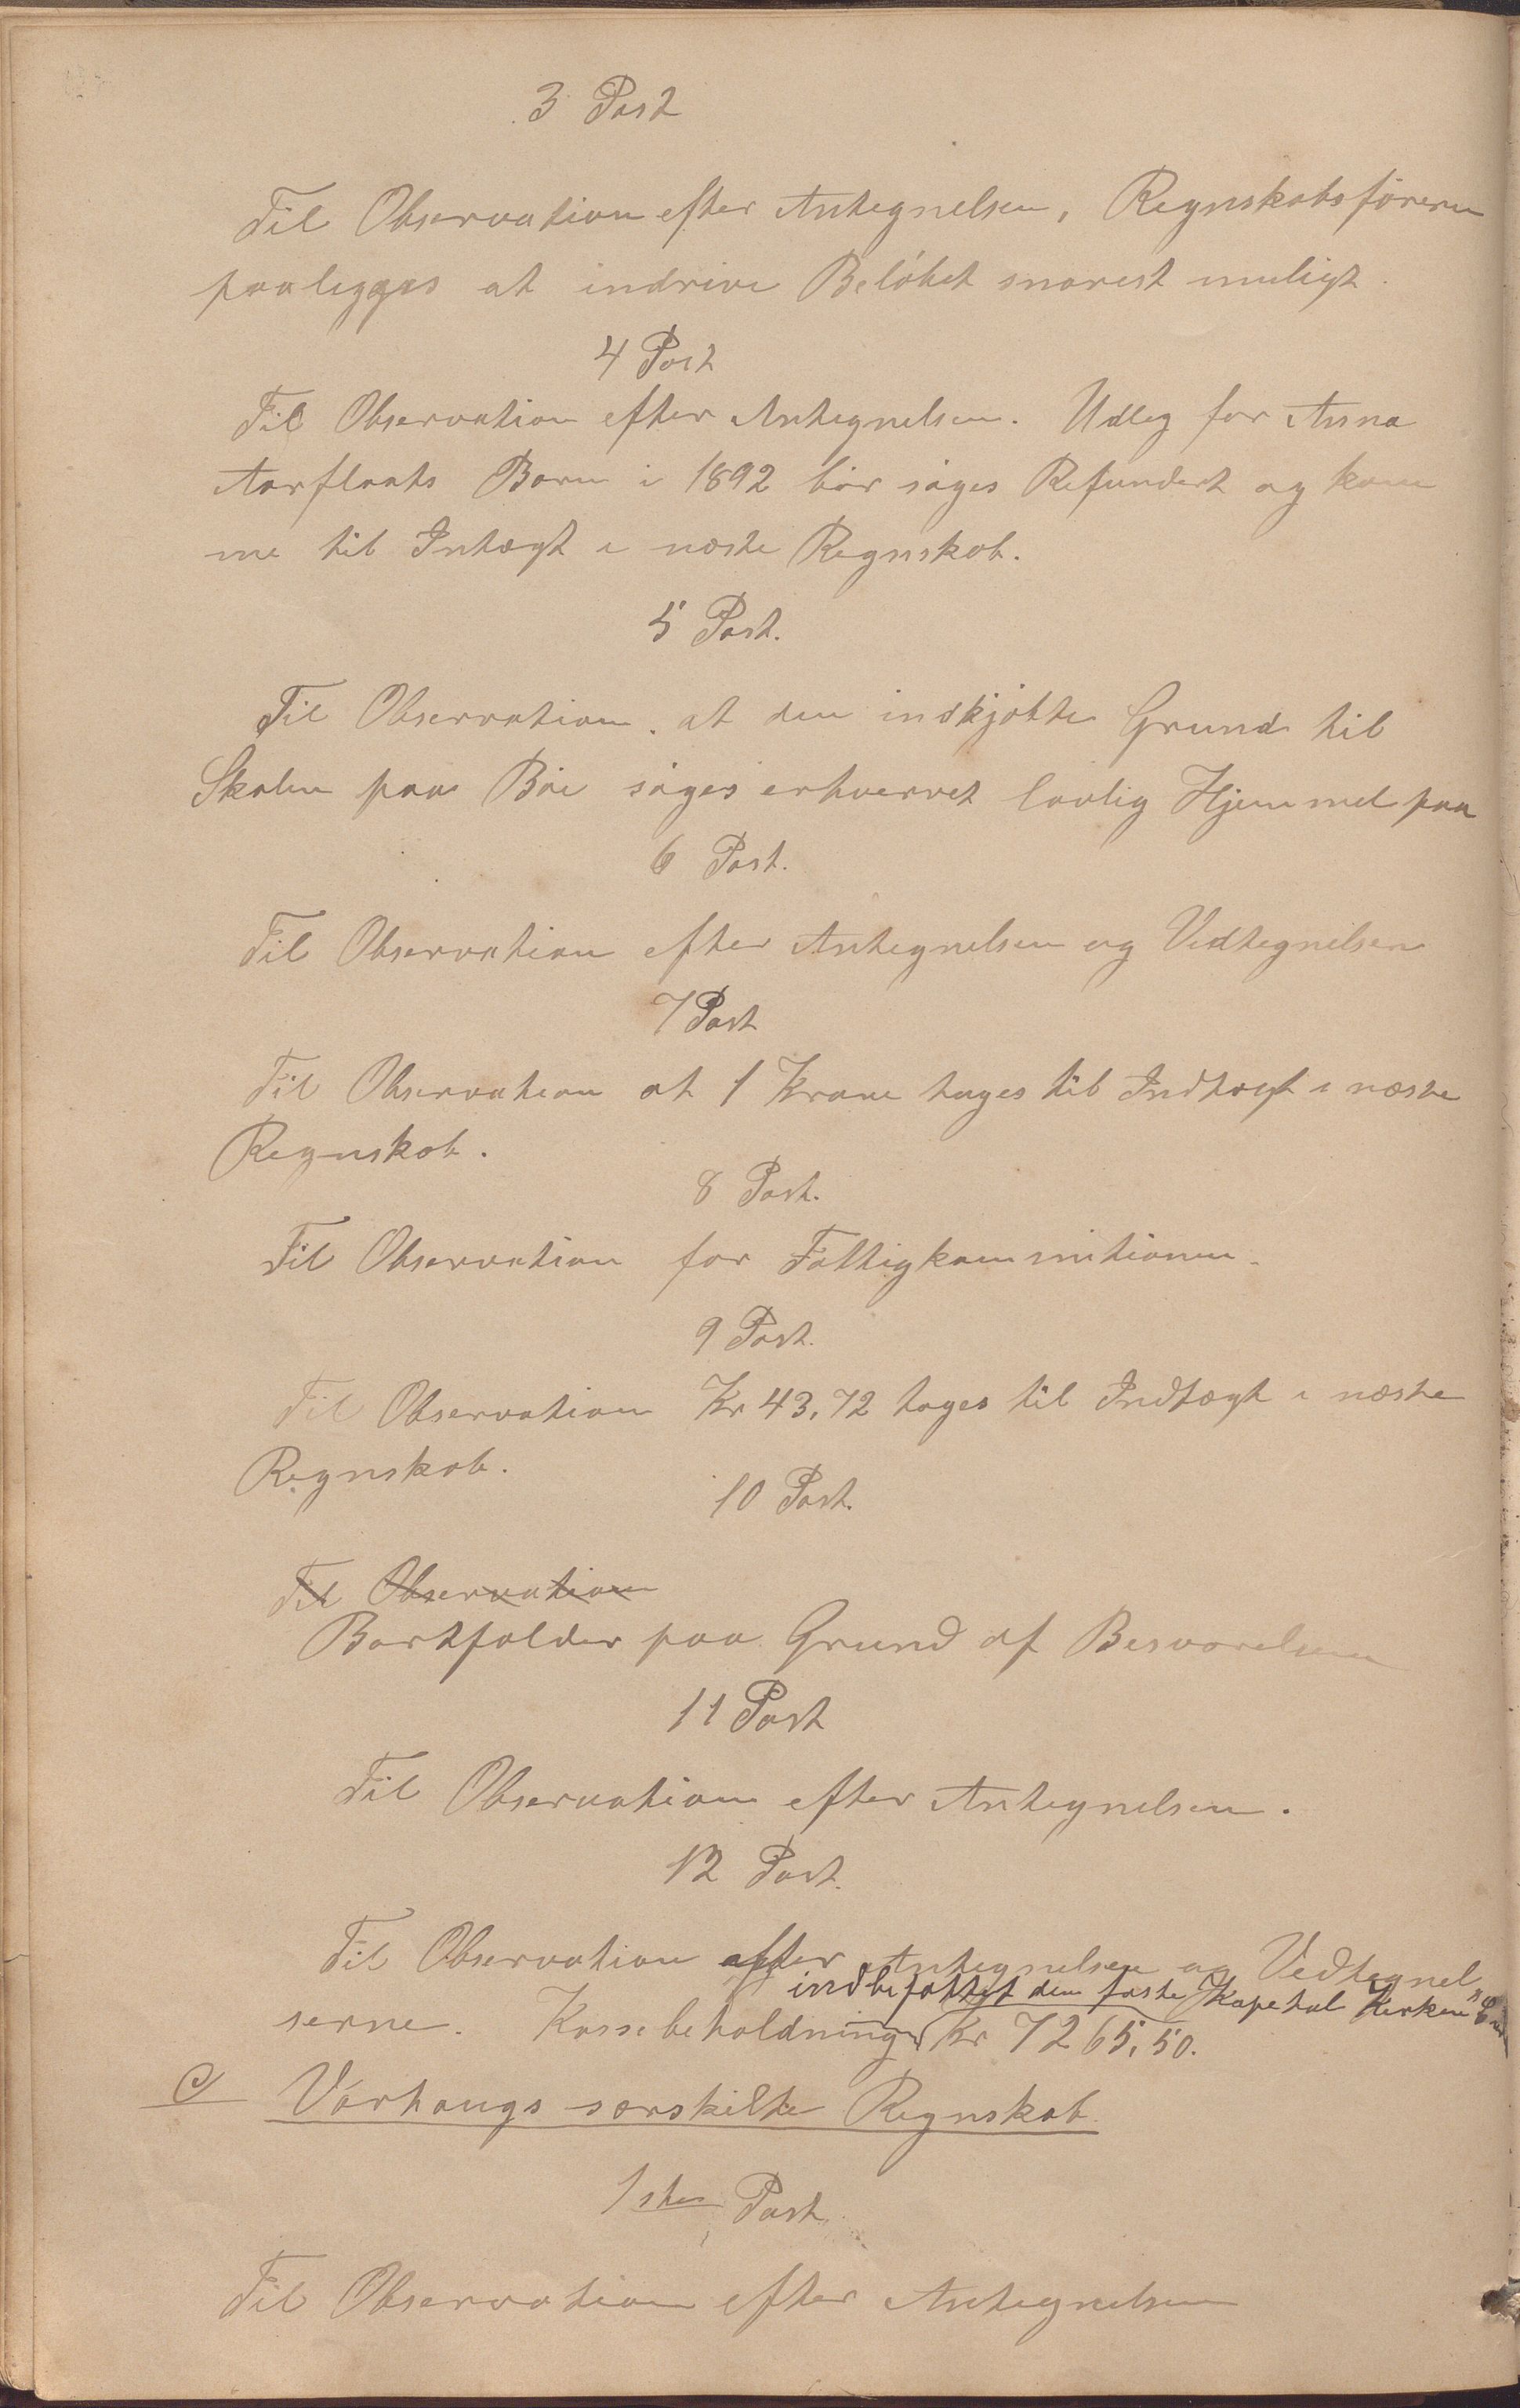 3 Post
Til Observation efter Antegnelsen, Regnskabsföreren
paalegges at indrive Belöbet snarest muligt.
4 Post
Til Observation efter Antegnelsen. Udleg for Anna
Aarflaats Barn i 1892 bör söges Refundert og kom
me til Intægt i næste Regnskab.
5 Post.
Til Observation. at den indkjöbte Grund til
Skolen paa Böe söges erhvervet lovlig Hjemmel paa
6 Post.
Til Observation efter Antegnelsen og Vedtegnelsen
7 Post
Til Observation at 1 Krone tages til Indtægt i næste
Regnskab.
8 Post.
Til Observation for Fattigkommitionen.
9 Post.
Til Observation Kr 43,72 tages til Indtægt i næste
Regnskab.
10 Post.
Til Observation
Bortfalder paa Grund af Besvarelsen
11 Post
Til Observation efter Antegnelsen.
12 Post.
Til Observation efter Antegnelsen og Vedtegnel
indbefattet den faste Kapetal Kirken
serne. Kassebeholdning Kr 7265,50.
C Varhaugs særskilte Regnskab.
1ste Post.
Til Observation efter Antegnelsen